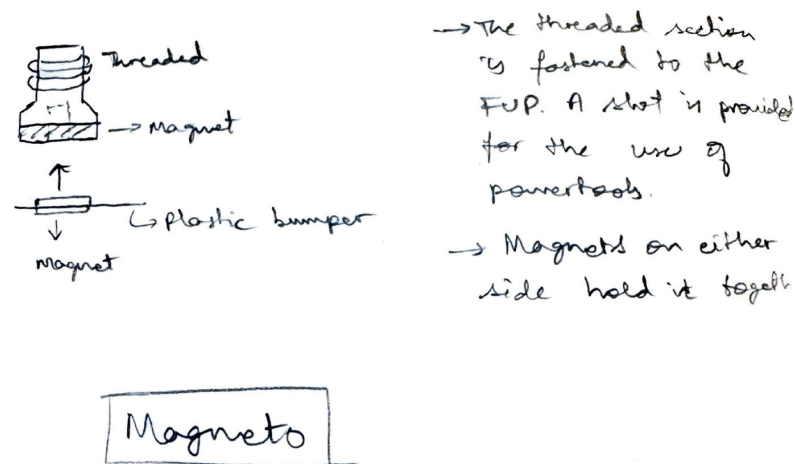 Threaded
→ Magnet
↳ Plastic bumper
Magnet
→ The threaded section
is fastened to the
FUP. A slot is provided
for the use of
powertools.
→ Magnets on either
side hold it togeth
Magneto